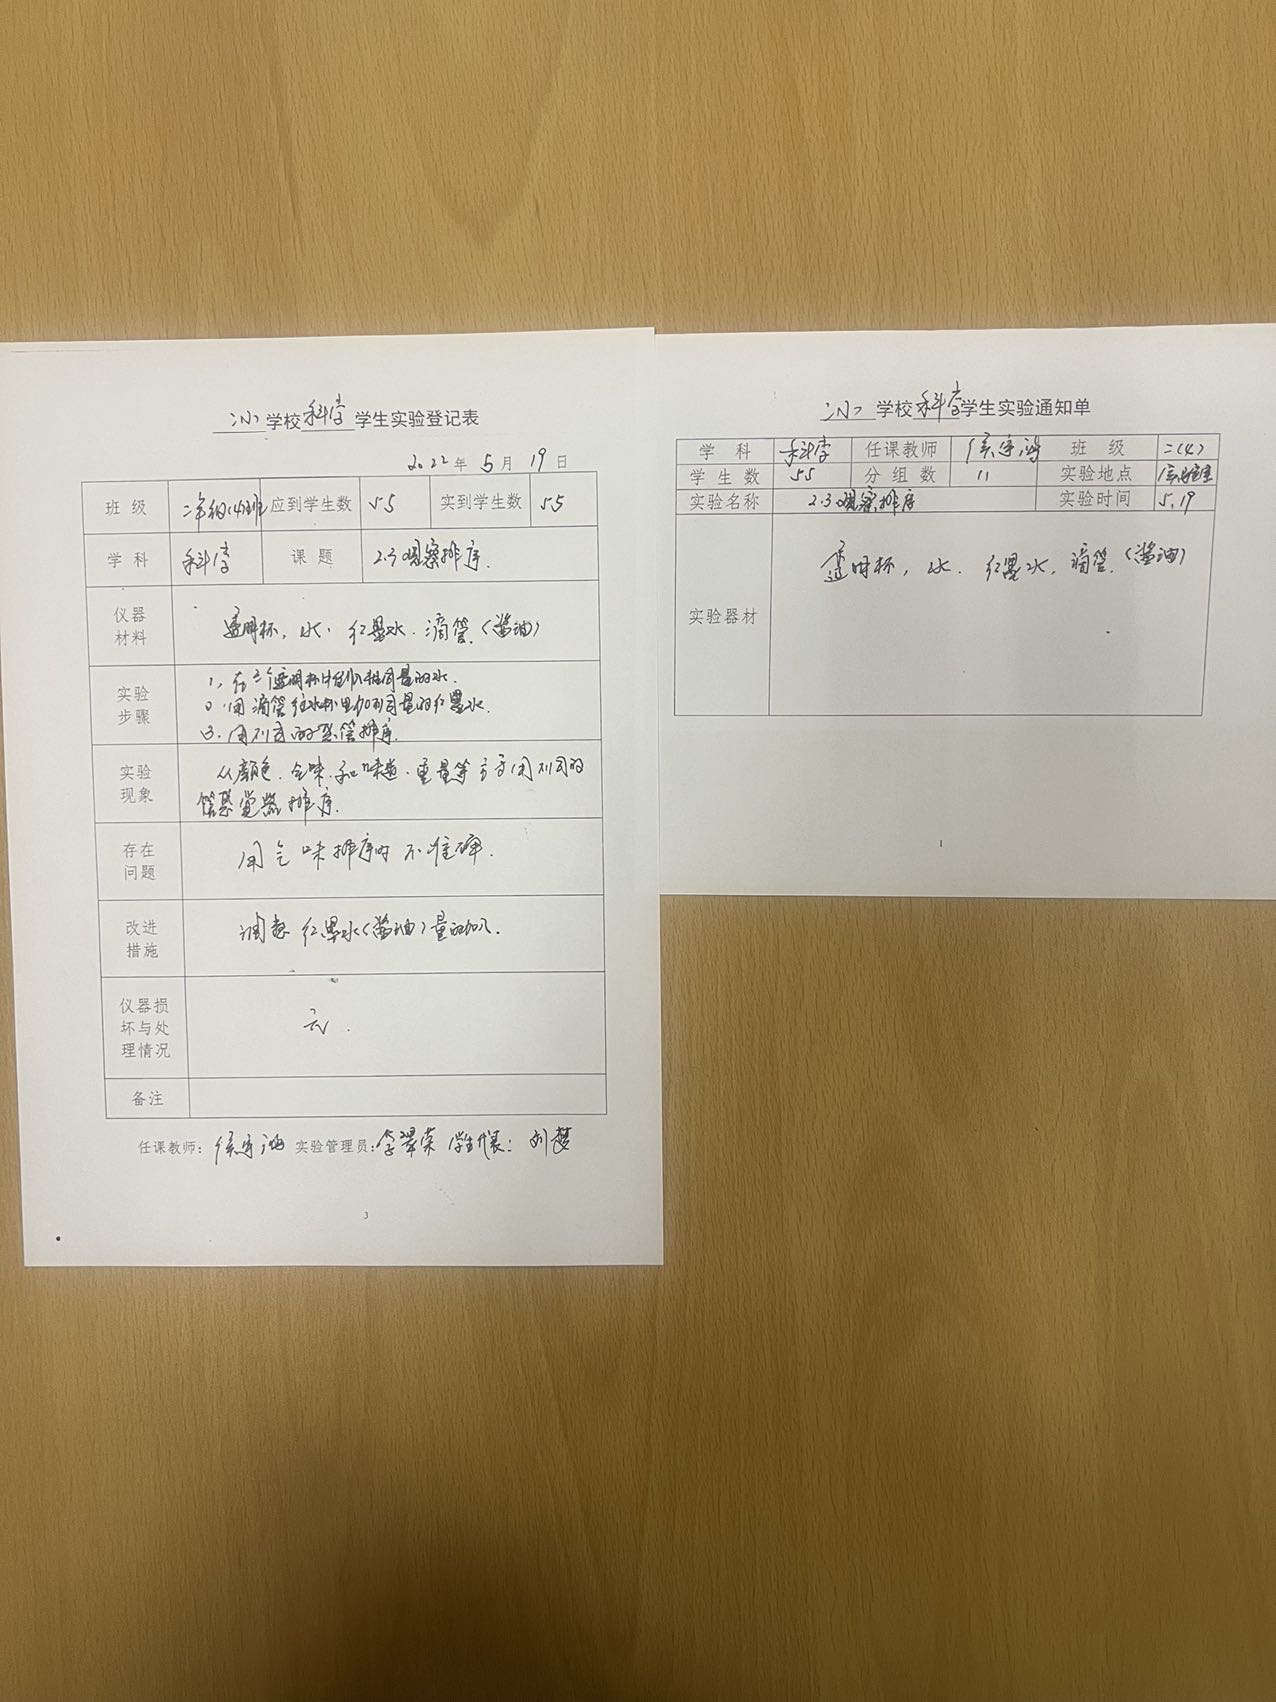 学校科学学生实验登记表
2022年5月19日
班级 二年级(4)班 应到学生数 55 实到学生数 55
学科 科学 课题 2.3观察排序.
仪器材料 透明杯，水. 红墨水. 滴管(酱油)
实验步骤 1、在三个透明杯中倒入相同量的水.
用滴管往水杯里加不同量的红墨水.
3. 用不同的感官排序.
实验现象 从颜色. 气味. 和味道. 重量等
排序.
存在问题 用气味排序时不准确.
改进措施 调整红墨水(酱油)量的加入.
仪器损坏与处理情况 无.
备注
任课教师： 实验管理员：李翠荣 学生代表：刘梦
3
学校科学学生实验通知单
学科 科学 任课教师 班级 二(4)
学生数 55 分组数 11 实验地点 实验室
实验名称 2.3观察排序 实验时间 5.19
实验器材 透明杯，水. 红墨水. 滴管.(酱油)
1